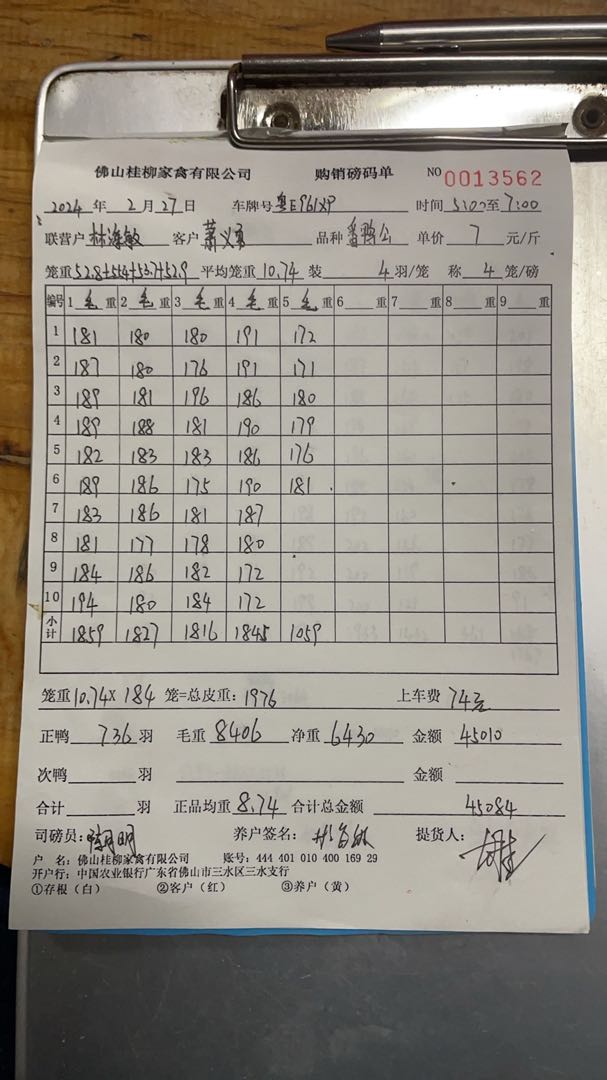 佛山桂柳家禽有限公司 购销磅码单 NO 0013562
2024 年 2 月 27 日 车牌号 粤E961XP 时间 5:00 至 7:00
联营户 林 敏 客户 萧义勇 品种 番鸭公 单价 7 元/斤
笼重 52.8+55.4+53.7+52.9 平均笼重 10.74 装 4 羽/笼 称 4 笼/磅
编号 1 毛 重 2 毛 重 3 毛 重 4 毛 重 5 毛 重 6 重 7 重 8 重 9 重
1 181 180 180 191 172
2 187 180 176 191 171
3 189 181 196 186 180
4 189 188 181 190 179
5 182 183 183 186 176
6 189 186 175 190 181
7 183 186 181 187
8 181 177 178 180
9 184 186 182 172
10 194 180 184 172
小计 1859 1827 1816 1845 1059
笼重 10.74 X 184 笼=总皮重: 1976 上车费 74元
正鸭 736 羽 毛重 8406 净重 6430 金额 45010
次鸭 羽 金额
合计 羽 正品均重 8.74 合计总金额 45084
司磅员: 明 养户签名: 提货人:
户 名: 佛山桂柳家禽有限公司 账号: 444 401 010 400 169 29
开户行: 中国农业银行广东省佛山市三水区三水支行
①存根（白） ②客户（红） ③养户（黄）